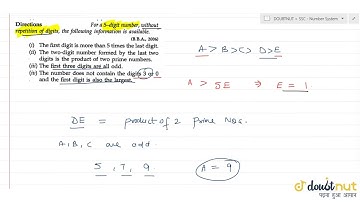 DOUBTNUT > SSC : Number System
Directions For a 5-digit number, without
repetition of digits, the following information is available.
(B.B.A., 2006)
(i) The first digit is more than 5 times the last digit.
(ii) The two-digit number formed by the last two
digits is the product of two prime numbers.
(iii) The first three digits are all odd.
(iv) The number does not contain the digits 3 or 0
and the first digit is also the largest.
A > B > C > D > E
A > 5E ⇒ E = 1
DE = product of 2 prime Nos.
A, B, C are odd.
5, 7, 9. A = 9
doubtnut
पढ़ना हुआ आसान